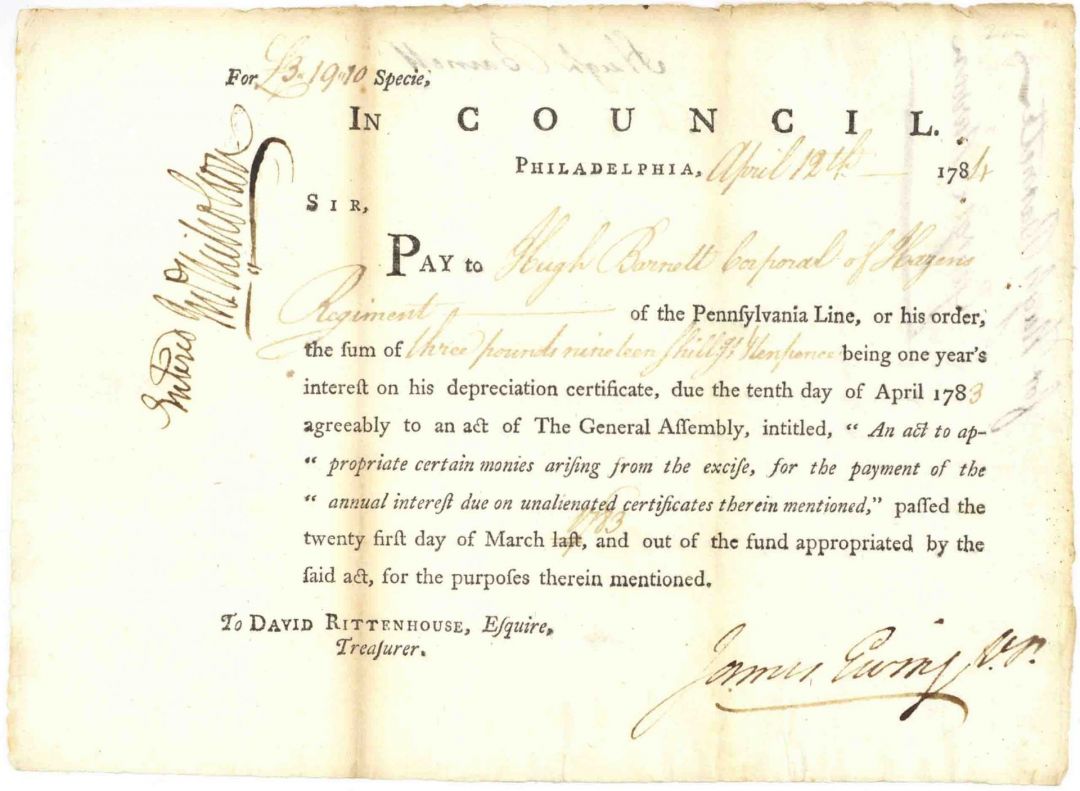 For £3.19.10 Specie,
IN COUNCIL.
PHILADELPHIA, April 12th 1784
SIR,
PAY to Hugh Barnett Corporal of Hazens
Regiment of the Pennſylvania Line, or his order,
the ſum of three pounds nineteen ſhillgs & tenpence being one year's
intereſt on his depreciation certificate, due the tenth day of April 1783
agreeably to an act of The General Aſſembly, intitled, “ An act to ap-
“ propriate certain monies ariſing from the exciſe, for the payment of the
“ annual intereſt due on unalienated certificates therein mentioned,” paſſed the
1783
twenty firſt day of March laſt, and out of the fund appropriated by the
ſaid act, for the purpoſes therein mentioned.
To DAVID RITTENHOUSE, Eſquire,
Treaſurer.
James Ewing V.P.
Entered Jno Nicholson
Hugh Barnett